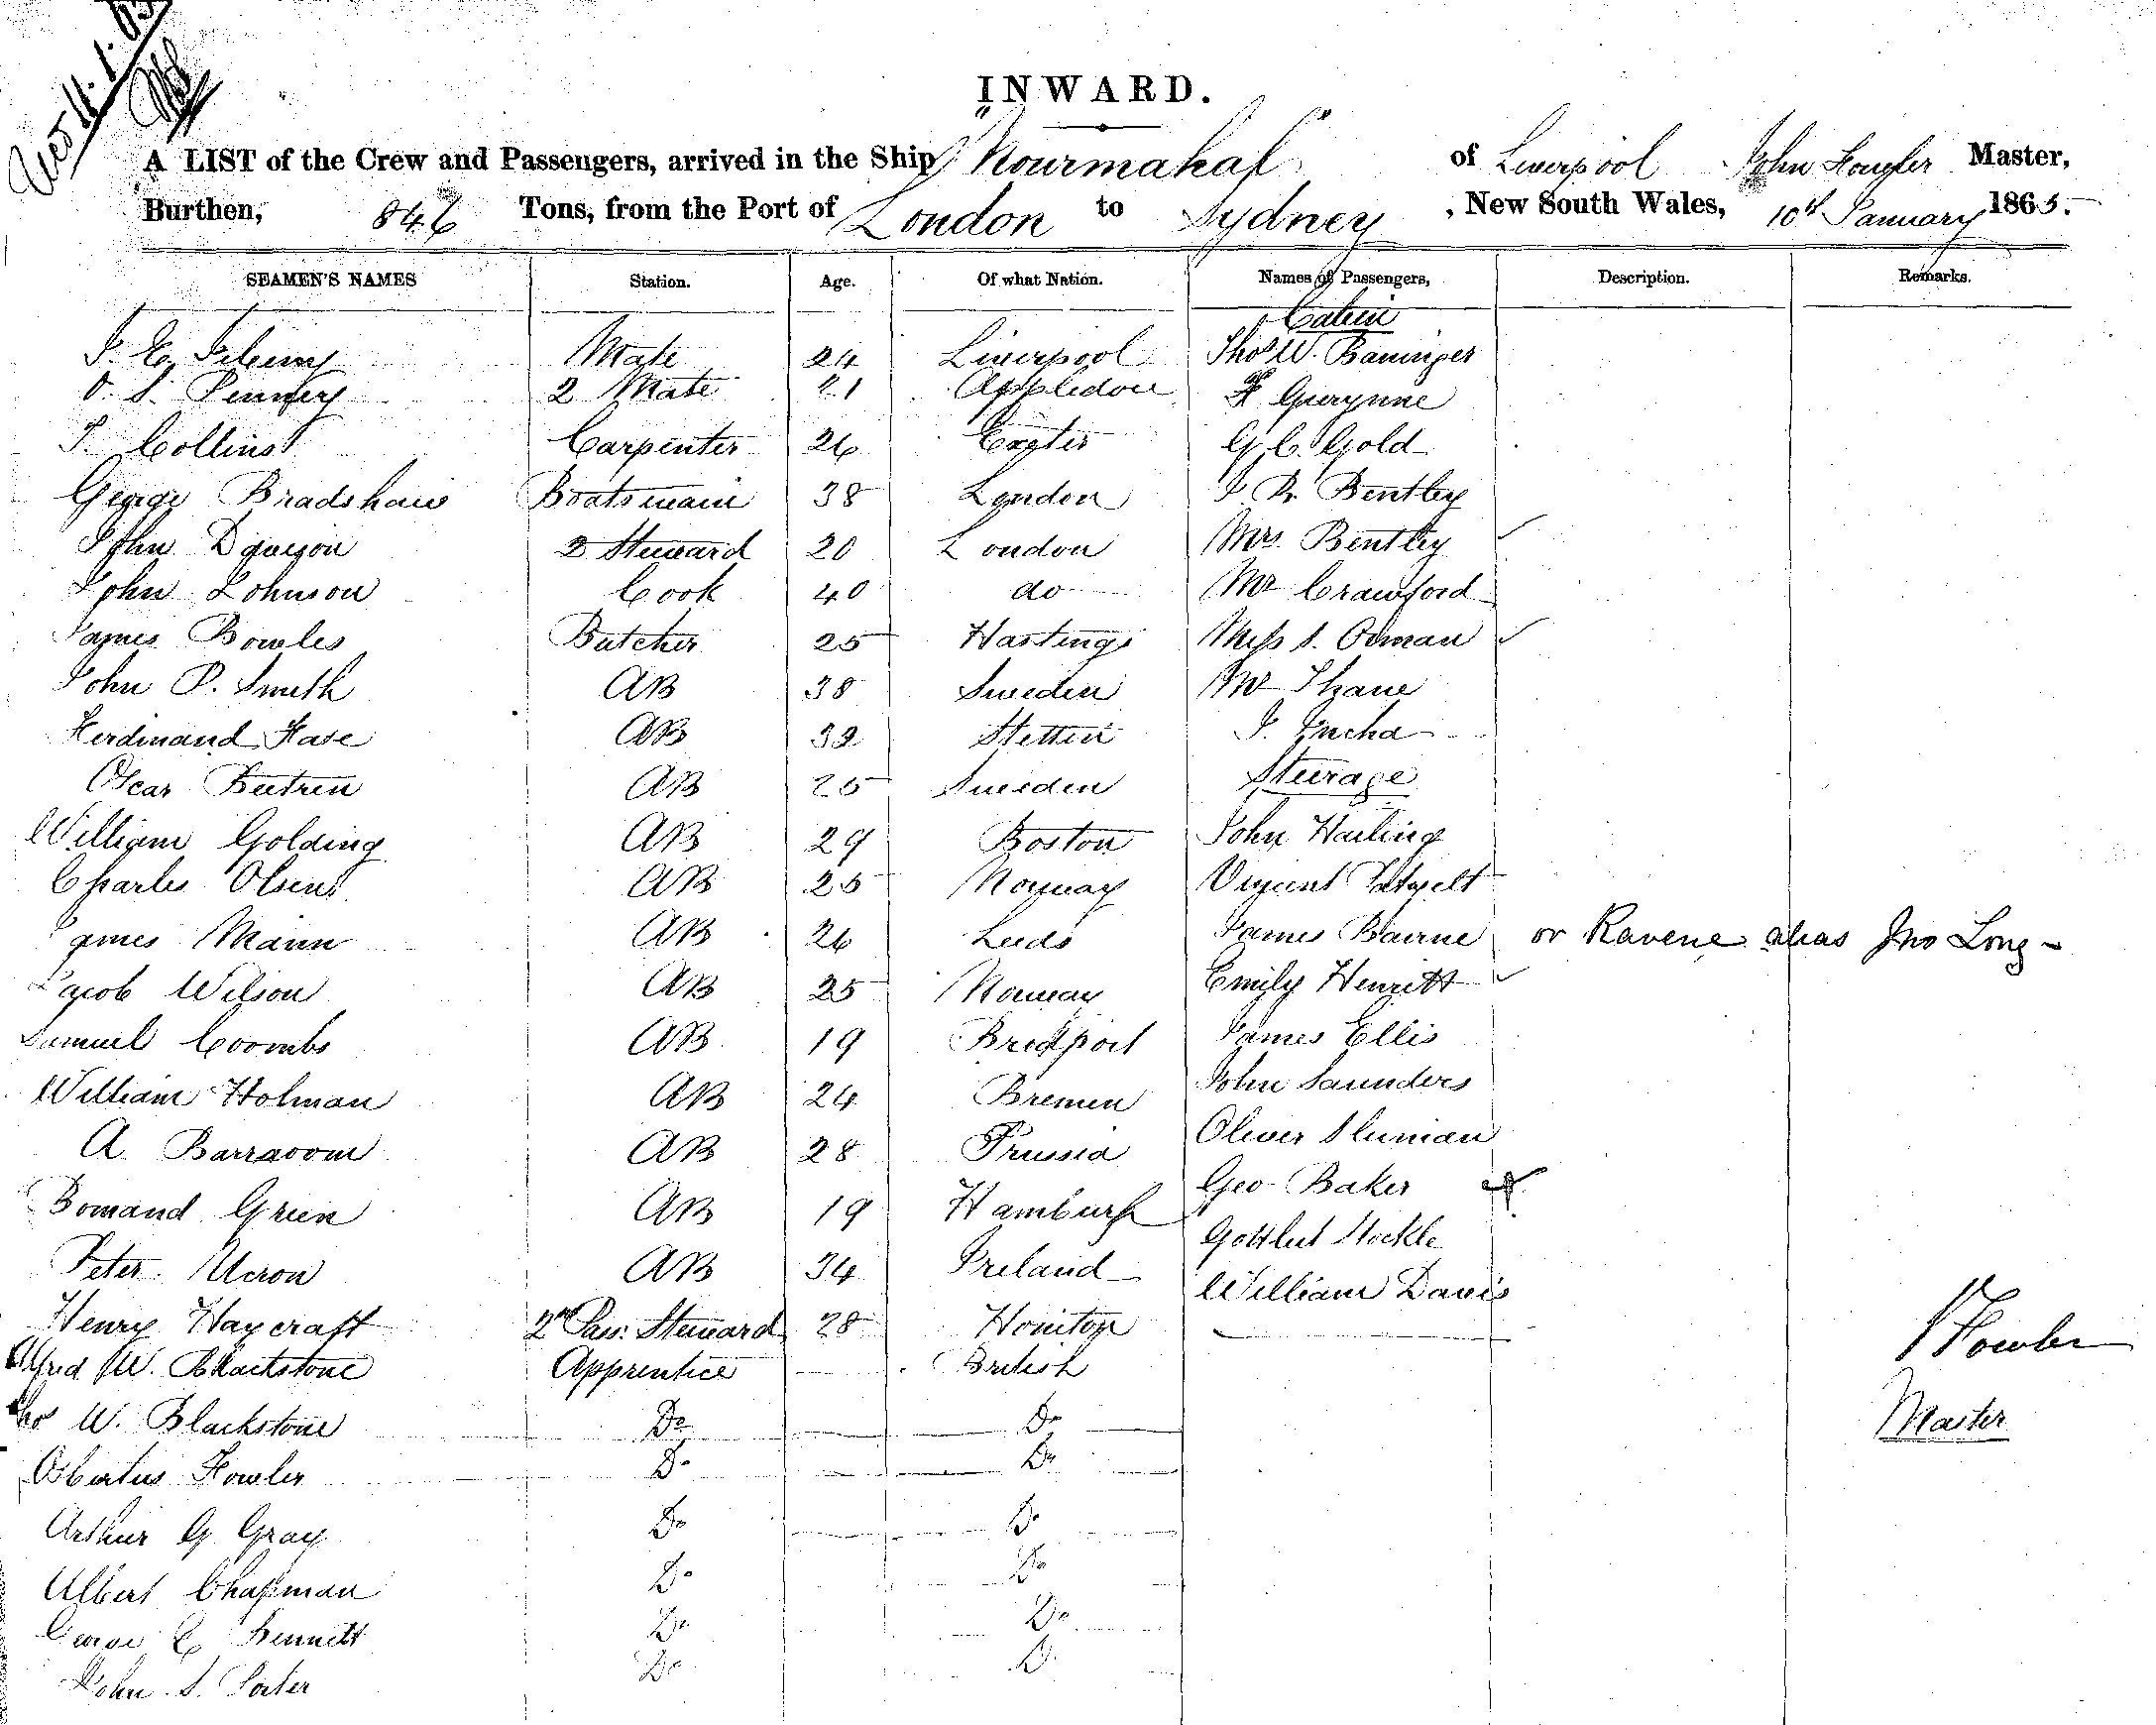 INWARD.
A LIST of the Crew and Passengers, arrived in the Ship "Nourmahal" of Liverpool John Master,
Burthen, 846 Tons, from the Port of London to Sydney, New South Wales, 10th January 1865.
SEAMEN'S NAMES Station. Age. Of what Nation. Names of Passengers, Description. Remarks.
Cabin
Mate 24 Liverpool Thos W.
2 Mate 21 Appledore Gwynne
Collins Carpenter 26 Exeter G. C. Gold
George Bradshaw Boatswain 38 London Bentley
John 2 Steward 20 London Mrs. Bentley
John Johnson Cook 40 do Mr Crawford
James Bowles Butcher 25 Hastings Miss
John P. Smith AB 38 Sweden Mr Thane
Ferdinand Hase AB 32 Stettin
Oscar AB 25 Sweden Steerage
William Golding AB 29 Boston John Harling
Charles Olsens AB 25 Norway
James Mann AB 26 Leeds James Bairne or Ravene alias Jno Long
Jacob Wilson AB 25 Norway Emily Hewitt
Samuel Coombs AB 19 Bridport James Ellis
William Holman AB 24 Bremen John Saunders
A. AB 28 Prussia Oliver Sluman
Green AB 19 Hamburg Geo Baker
Peter AB 34 Ireland
William Davis
Henry Haycraft 2nd Pass: Steward 28 Honiton
Alfred W. Blackstone Apprentice British
Thos W. Blackstone Do Do
Fowler Do Do
Arthur G Gray Do Do
Albert Chapman Do Do
George E Bennett Do Do
John S. Porter Do Do
J Fowler
Master